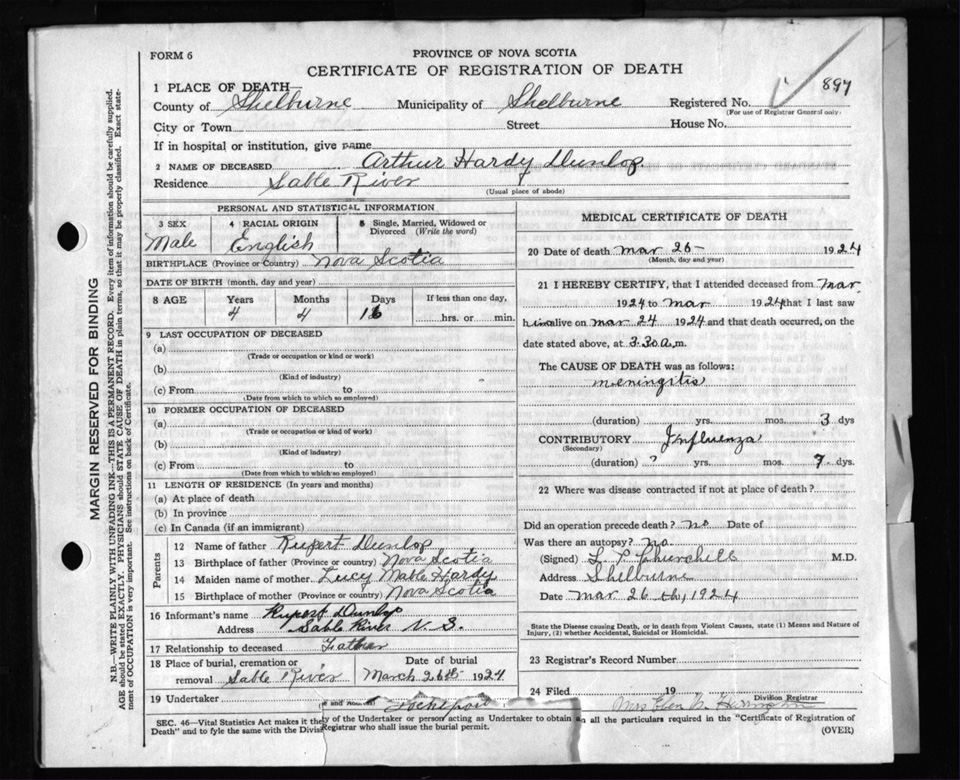 FORM 6
PROVINCE OF NOVA SCOTIA
CERTIFICATE OF REGISTRATION OF DEATH
897
1 PLACE OF DEATH
County of Shelburne Municipality of Shelburne Registered No.
(For use of Registrar General only.
City or Town Street House No.
If in hospital or institution, give name
2 NAME OF DECEASED Arthur Hardy Dunlop.
Residence Sable River
(Usual place of abode)
PERSONAL AND STATISTICAL INFORMATION
3 SEX 4 RACIAL ORIGIN 5 Single, Married, Widowed or Divorced (Write the word)
Male English
BIRTHPLACE (Province or Country) Nova Scotia
DATE OF BIRTH (month, day and year)
8 AGE Years Months Days If less than one day,
4 4 16 hrs. or min.
9 LAST OCCUPATION OF DECEASED
(a)
(Trade or occupation or kind or work)
(b)
(Kind of industry)
(c) From to
(Date from which to which so employed)
10 FORMER OCCUPATION OF DECEASED
(a)
(Trade or occupation or kind of work)
(b)
(Kind of industry)
(c) From to
(Date from which to which so employed)
11 LENGTH OF RESIDENCE (In years and months)
(a) At place of death
(b) In province
(c) In Canada (if an immigrant)
Parents
12 Name of father Rupert Dunlop
13 Birthplace of father (Province or country) Nova Scotia
14 Maiden name of mother Lucy Mable Hardy
15 Birthplace of mother (Province or country) Nova Scotia
16 Informant's name Rupert Dunlop
Address Sable River N. S.
17 Relationship to deceased Father
18 Place of burial, cremation or removal Sable River
Date of burial March 26th 1924
19 Undertaker
Lockeport
MEDICAL CERTIFICATE OF DEATH
20 Date of death Mar 26- 1924
(Month, day and year)
21 I HEREBY CERTIFY, that I attended deceased from Mar.
1924 to Mar 1924 that I last saw
him alive on Mar 24 1924 and that death occurred, on the
date stated above, at 3.30 a.m.
The CAUSE OF DEATH was as follows:
Meningitis
(duration) yrs. mos. 3 dys
CONTRIBUTORY Influenza
(Secondary)
(duration) ? yrs. mos. 7 dys.
22 Where was disease contracted if not at place of death?
Did an operation precede death? no Date of
Was there an autopsy? no.
(Signed) L. P. Churchill M.D.
Address Shelburne
Date Mar 26 th, 1924
State the Disease causing Death, or in death from Violent Causes, state (1) Means and Nature of
Injury, (2) whether Accidental, Suicidal or Homicidal.
23 Registrar's Record Number
24 Filed 19
Division Registrar
SEC. 46—Vital Statistics Act makes it the y of the Undertaker or person acting as Undertaker to obtain an all the particulars required in the "Certificate of Registration of
Death" and to fyle the same with the Divis Registrar who shall issue the burial permit.
(OVER)
MARGIN RESERVED FOR BINDING
N.B.—WRITE PLAINLY WITH UNFADING INK—THIS IS A PERMANENT RECORD. Every item of information should be carefully supplied.
AGE should be stated EXACTLY. PHYSICIANS should STATE CAUSE OF DEATH in plain terms, so that it may be properly classified. Exact state-
ment of OCCUPATION is very important. See instructions on back of Certificate.